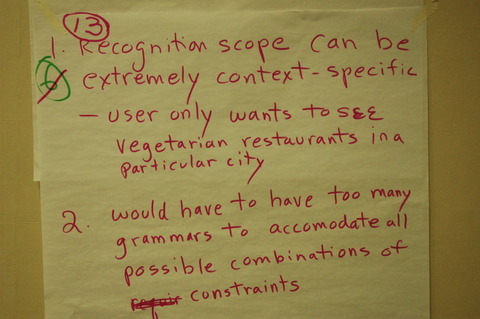 13
1. Recognition scope can be
6 extremely context-specific
- user only wants to see
vegetarian restaurants in a
particular city
2. would have to have too many
grammars to accomodate all
possible combinations of
requir constraints